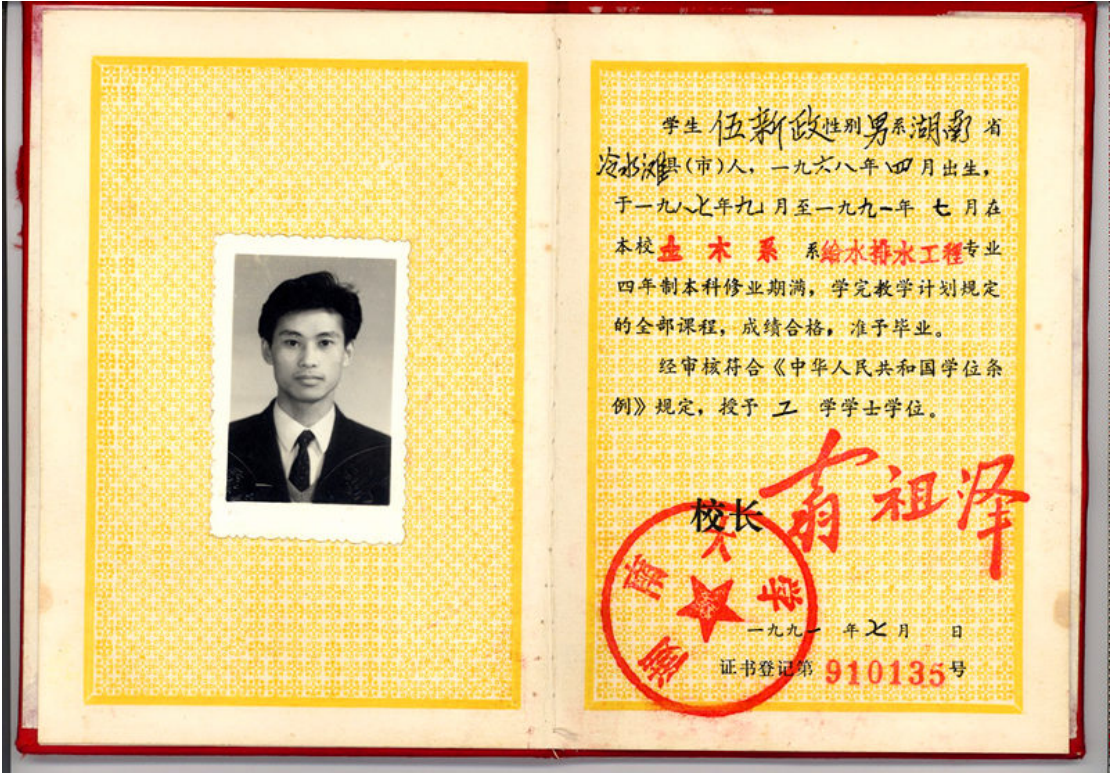 学生伍新政性别男系湖南省
冷水滩县(市)人，一九六八年四月出生，
于一九八七年九月至一九九一年七月在
本校土木系系给水排水工程专业
四年制本科修业期满，学完教学计划规定
的全部课程，成绩合格，准予毕业。
经审核符合《中华人民共和国学位条
例》规定，授予工学学士学位。
校长翁祖泽
湖南大学
一九九一年七月 日
证书登记第910135号